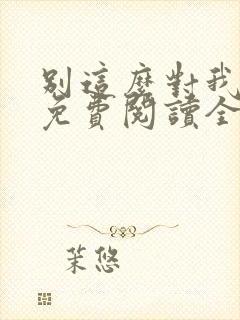 別這麼對我
免費閱讀全
茉悠